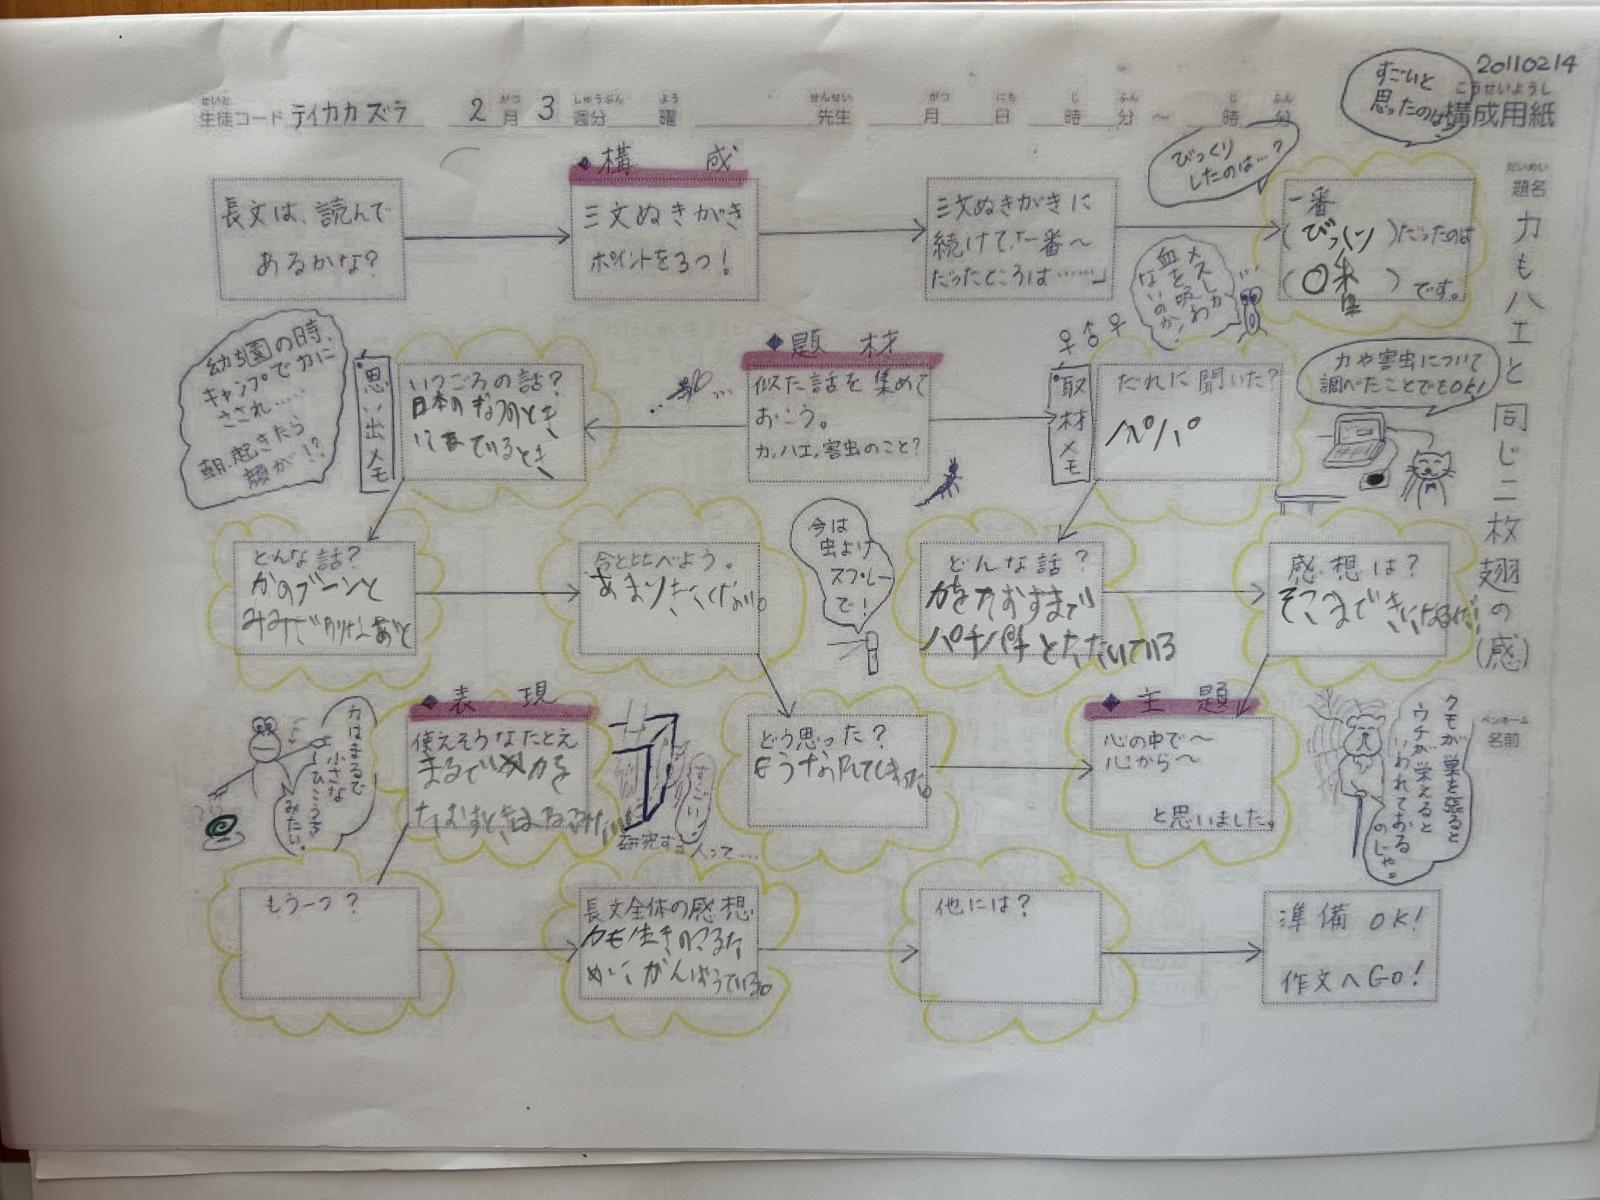 20110214
こうせいようし
構成用紙
せいと
生徒コード テイカカズラ
2 がつ 月 3 しゅうぶん 週分 よう 曜
せんせい 先生 がつ 月 にち 日 じ 時 ふん 分 ～ じ 時 ふん 分
だいめい
題名
カもハエと同じ二枚翅の(感)
ペンネーム
名前
すごいと
思ったのは?
びっくり
したのは…?
長文は、読んで
あるかな?
◆構成
三文ぬきがき
ポイントを3つ!
三文ぬきがきに
続けて「一番～
だったところは……」
一番
(びっくり)だったのは
(〇番)です。
メスしか
血を吸わ
ないのか!
♀♂♀
幼ち園の時、
キャンプでカに
さされ……
朝、起きたら
顔が!?
思い出メモ
いつごろの話?
日本のなつのとき
◆題材
似た話を集めて
おこう。
カ,ハエ,害虫のこと?
取材メモ
だれに聞いた?
パパ
カや害虫について
調べたことでもOK!
どんな話?
かのブーンと
今と比べよう。
今は
虫よけ
スプレー
で!
どんな話?
パチパチとたたいている
感想は?
カはまるで
小さな
ひこうき
みたい。
◆表現
使えそうなたとえ
すごい!
研究する人って…
どう思った?
◆主題
心の中で～
心から～
と思いました。
クモが巣を張ると
ウチが栄えると
いわれておる
のじゃ。
もう一つ?
長文全体の感想
カも生きのこるた
めにがんばっている。
他には?
準備OK!
作文へGO!